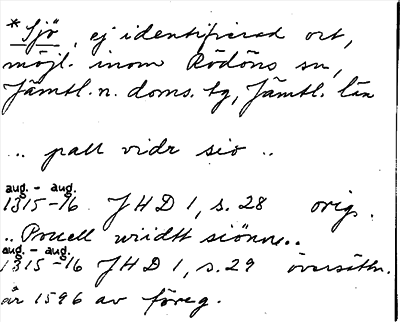 *Sjö, ej identifierad ort,
möjl. inom Rödöns sn,
Jämtl. n. doms. tg, Jämtl. län
.. pall vidr sio ..
aug. - aug.
1315-16 JHD 1, s. 28 orig.
.. Pouell wiidtt siönn..
aug. - aug.
1315-16 JHD 1, s. 29 översättn.
år 1596 av föreg.